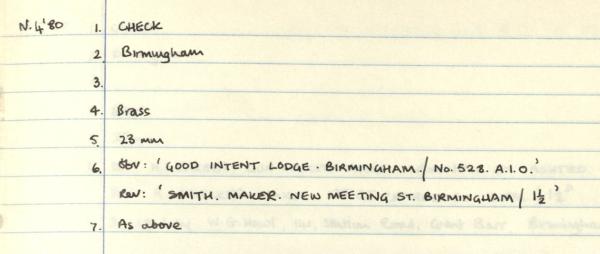 N.4'80 1. CHECK
2. Birmingham
3.
4. Brass
5. 23 mm
6. Obv: 'GOOD INTENT LODGE. BIRMINGHAM. / No. 528. A.I.O.'
Rev: 'SMITH. MAKER. NEW MEETING ST. BIRMINGHAM / 1½'
7. As above